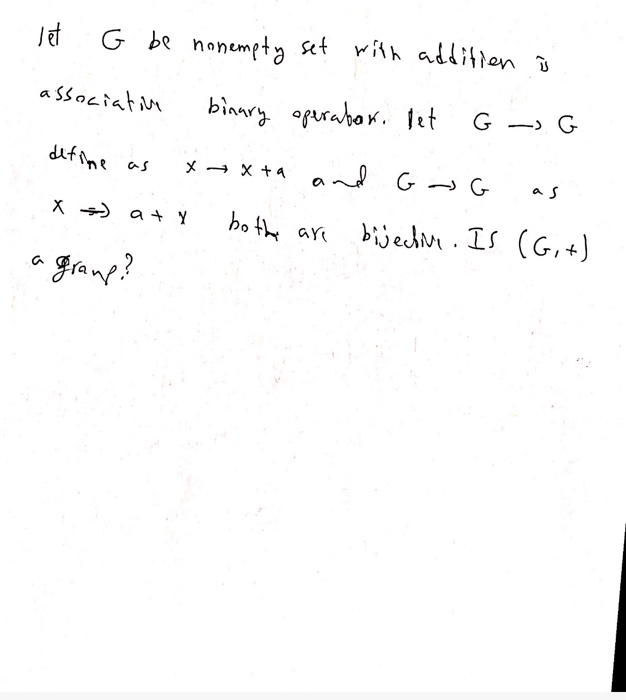 let G be nonempty set with addition is
associative binary operator. let G → G
define as x → x + a and G → G as
x ⇒ a + x both are bijective. Is (G, +)
a group?